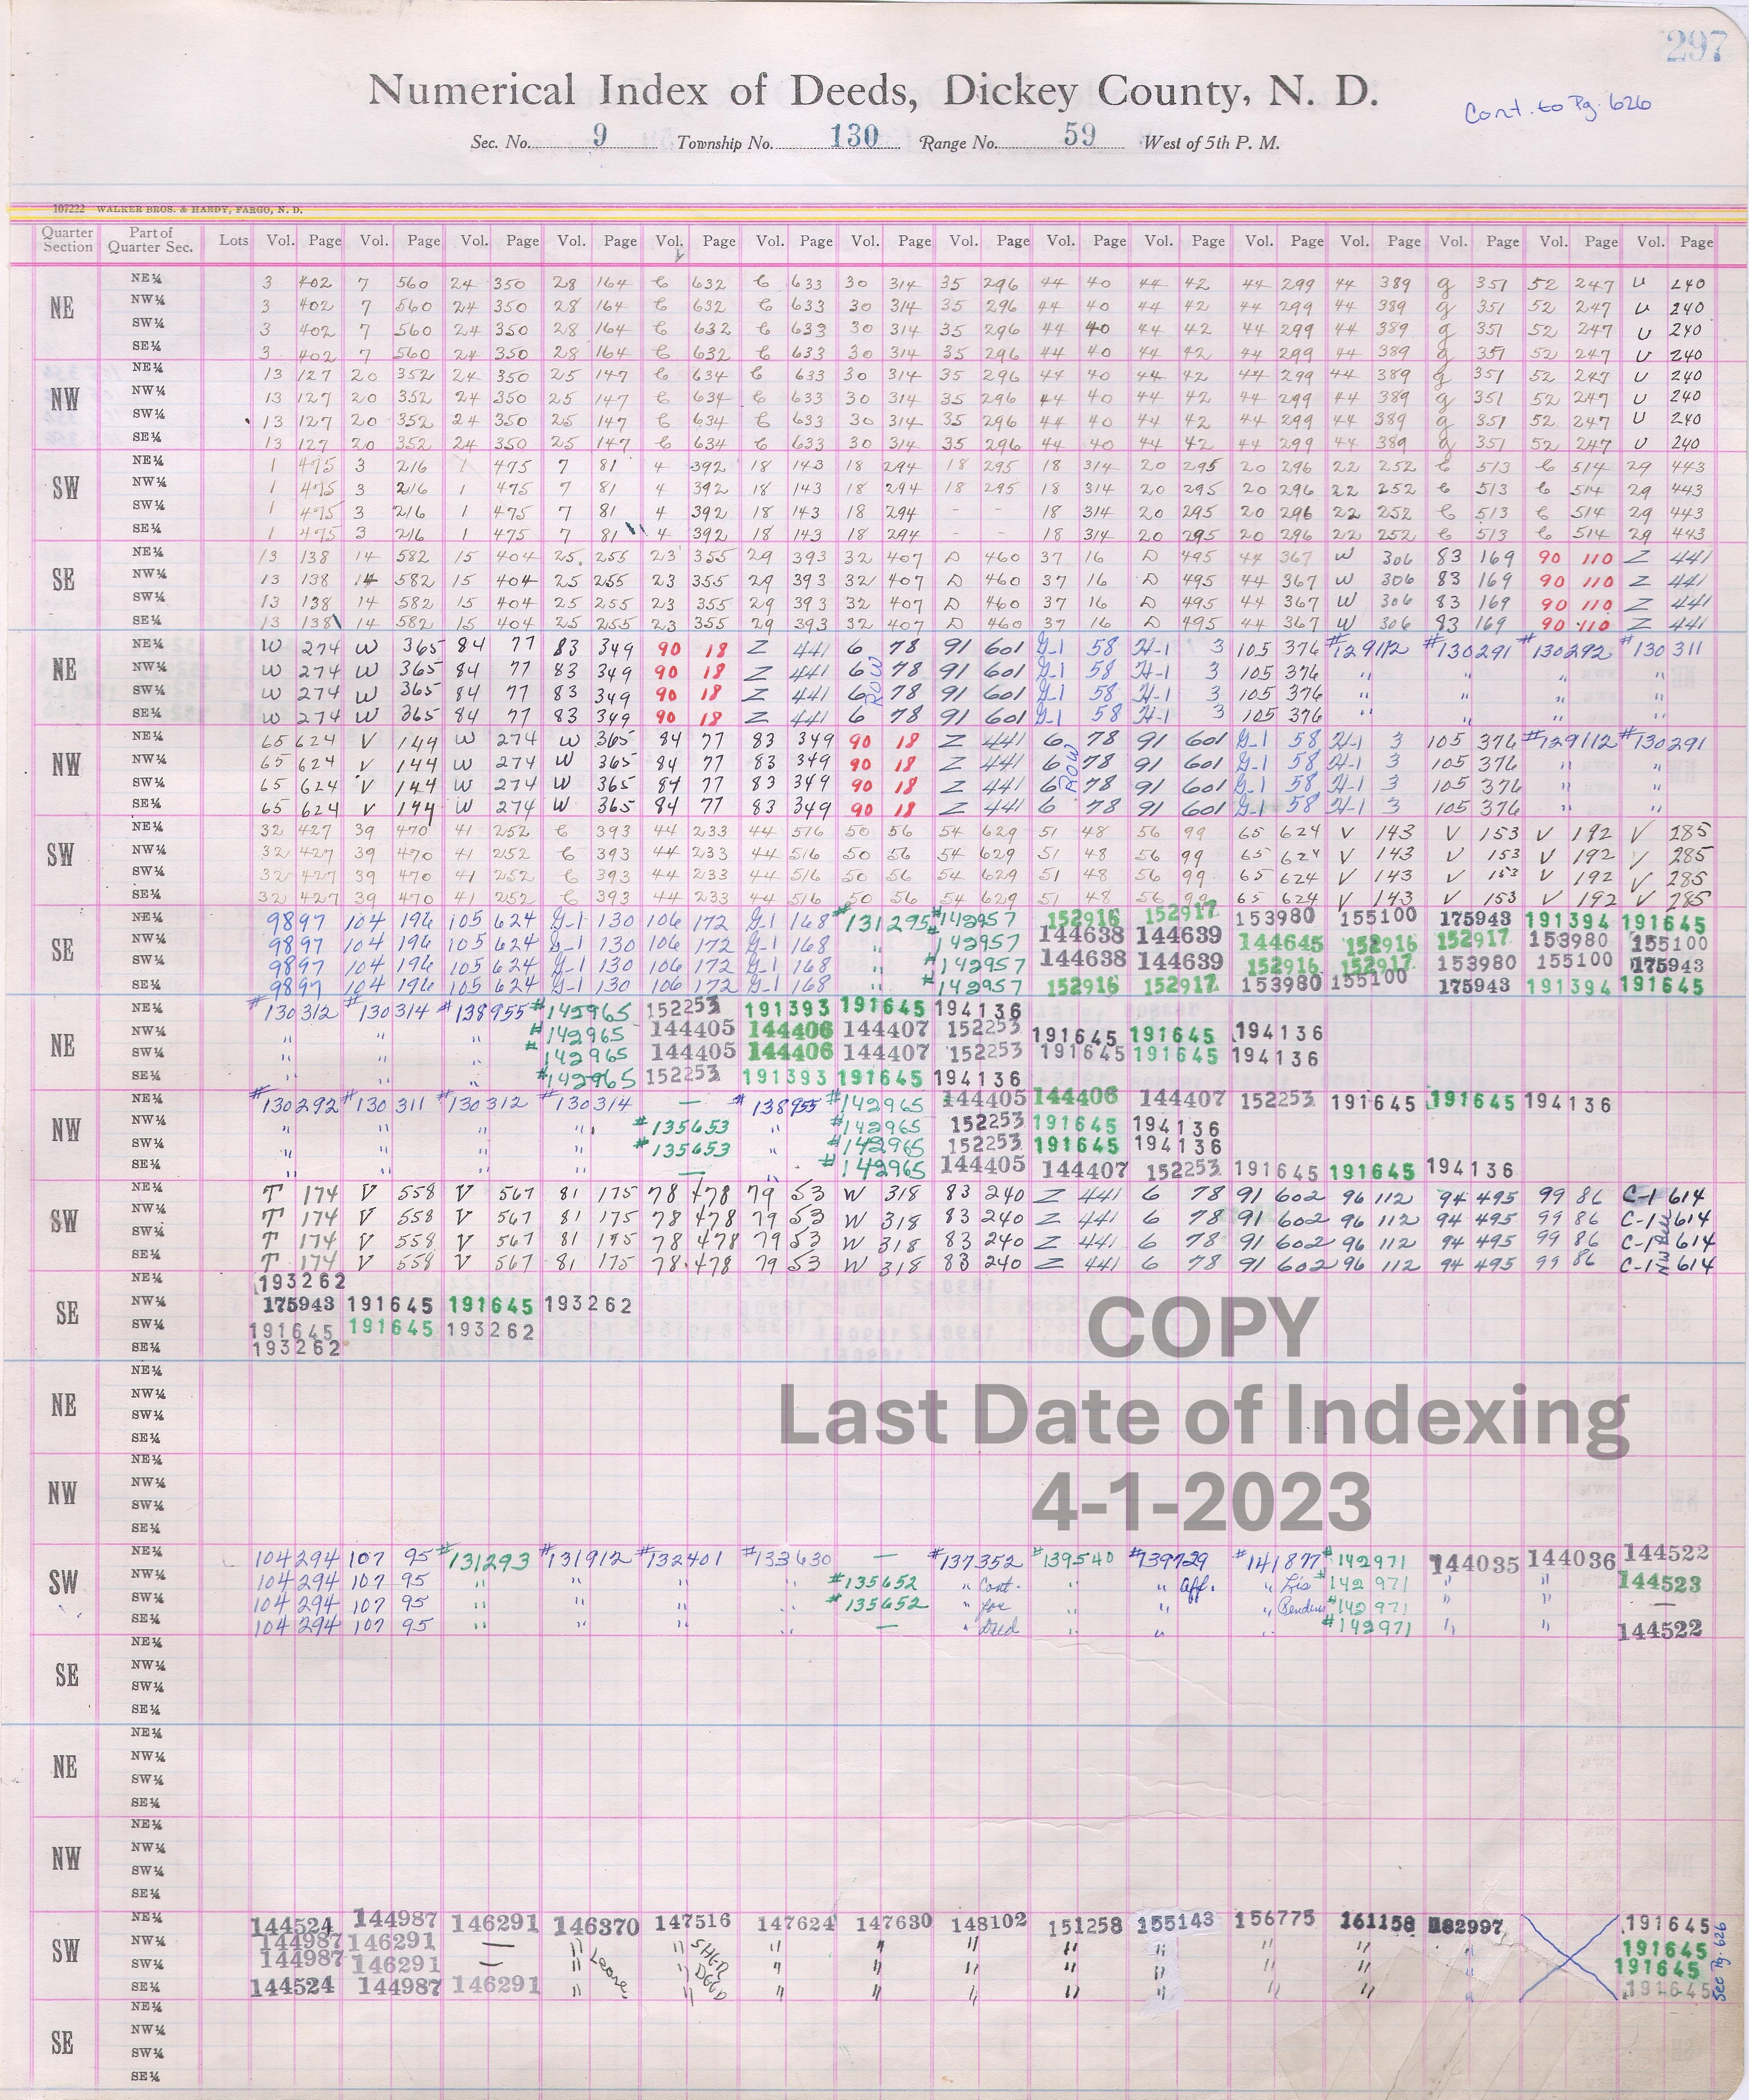 297
Numerical Index of Deeds, Dickey County, N. D.
Cont. to Pg. 626
Sec. No. 9 Township No. 130 Range No. 59 West of 5th P. M.
107222 WALKER BROS. & HARDY, FARGO, N. D.
Quarter Section Part of Quarter Sec. Lots Vol. Page Vol. Page Vol. Page Vol. Page Vol. Page Vol. Page Vol. Page Vol. Page Vol. Page Vol. Page Vol. Page Vol. Page Vol. Page Vol. Page Vol. Page
NE NE¼ 3 402 7 560 24 350 28 164 C 632 C 633 30 314 35 296 44 40 44 42 44 299 44 389 g 351 52 247 U 240
NW¼ 3 402 7 560 24 350 28 164 C 632 C 633 30 314 35 296 44 40 44 42 44 299 44 389 g 351 52 247 U 240
SW¼ 3 402 7 560 24 350 28 164 C 632 C 633 30 314 35 296 44 40 44 42 44 299 44 389 g 351 52 247 U 240
SE¼ 3 402 7 560 24 350 28 164 C 632 C 633 30 314 35 296 44 40 44 42 44 299 44 389 g 351 52 247 U 240
NW NE¼ 13 127 20 352 24 350 25 147 C 634 C 633 30 314 35 296 44 40 44 42 44 299 44 389 g 351 52 247 U 240
NW¼ 13 127 20 352 24 350 25 147 C 634 C 633 30 314 35 296 44 40 44 42 44 299 44 389 g 351 52 247 U 240
SW¼ 13 127 20 352 24 350 25 147 C 634 C 633 30 314 35 296 44 40 44 42 44 299 44 389 g 351 52 247 U 240
SE¼ 13 127 20 352 24 350 25 147 C 634 C 633 30 314 35 296 44 40 44 42 44 299 44 389 g 351 52 247 U 240
SW NE¼ 1 475 3 216 1 475 7 81 4 392 18 143 18 294 18 295 18 314 20 295 20 296 22 252 C 513 C 514 29 443
NW¼ 1 475 3 216 1 475 7 81 4 392 18 143 18 294 18 295 18 314 20 295 20 296 22 252 C 513 C 514 29 443
SW¼ 1 475 3 216 1 475 7 81 4 392 18 143 18 294 - - 18 314 20 295 20 296 22 252 C 513 C 514 29 443
SE¼ 1 475 3 216 1 475 7 81 4 392 18 143 18 294 - - 18 314 20 295 20 296 22 252 C 513 C 514 29 443
SE NE¼ 13 138 14 582 15 404 25 255 23 355 29 393 32 407 D 460 37 16 D 495 44 367 W 306 83 169 90 110 Z 441
NW¼ 13 138 14 582 15 404 25 255 23 355 29 393 32 407 D 460 37 16 D 495 44 367 W 306 83 169 90 110 Z 441
SW¼ 13 138 14 582 15 404 25 255 23 355 29 393 32 407 D 460 37 16 D 495 44 367 W 306 83 169 90 110 Z 441
SE¼ 13 138 14 582 15 404 25 255 23 355 29 393 32 407 D 460 37 16 D 495 44 367 W 306 83 169 90 110 Z 441
NE NE¼ W 274 W 365 84 77 83 349 90 18 Z 441 6 78 91 601 G-1 58 H-1 3 105 376 #129112 #130291 #130292 #130311
NW¼ W 274 W 365 84 77 83 349 90 18 Z 441 6 ROW 78 91 601 G-1 58 H-1 3 105 376 " " " "
SW¼ W 274 W 365 84 77 83 349 90 18 Z 441 6 78 91 601 G-1 58 H-1 3 105 376 " " " "
SE¼ W 274 W 365 84 77 83 349 90 18 Z 441 6 78 91 601 G-1 58 H-1 3 105 376 " " " "
NW NE¼ 65 624 V 144 W 274 W 365 84 77 83 349 90 18 Z 441 6 78 91 601 G-1 58 H-1 3 105 376 #129112 #130291
NW¼ 65 624 V 144 W 274 W 365 84 77 83 349 90 18 Z 441 6 ROW 78 91 601 G-1 58 H-1 3 105 376 " "
SW¼ 65 624 V 144 W 274 W 365 84 77 83 349 90 18 Z 441 6 78 91 601 G-1 58 H-1 3 105 376 " "
SE¼ 65 624 V 144 W 274 W 365 84 77 83 349 90 18 Z 441 6 78 91 601 G-1 58 H-1 3 105 376 " "
SW NE¼ 32 427 39 470 41 252 C 393 44 233 44 516 50 56 54 629 51 48 56 99 65 624 V 143 V 153 V 192 V 285
NW¼ 32 427 39 470 41 252 C 393 44 233 44 516 50 56 54 629 51 48 56 99 65 624 V 143 V 153 V 192 V 285
SW¼ 32 427 39 470 41 252 C 393 44 233 44 516 50 56 54 629 51 48 56 99 65 624 V 143 V 153 V 192 V 285
SE¼ 32 427 39 470 41 252 C 393 44 233 44 516 50 56 54 629 51 48 56 99 65 624 V 143 V 153 V 192 V 285
SE NE¼ 98 97 104 196 105 624 G-1 130 106 172 G-1 168 #131295 #142957 152916 152917 153980 155100 175943 191394 191645
NW¼ 98 97 104 196 105 624 G-1 130 106 172 G-1 168 " #142957 144638 144639 144645 152916 152917 153980 155100
SW¼ 98 97 104 196 105 624 G-1 130 106 172 G-1 168 " #142957 144638 144639 152916 152917 153980 155100 175943
SE¼ 98 97 104 196 105 624 G-1 130 106 172 G-1 168 " #142957 152916 152917 153980 155100 175943 191394 191645
NE NE¼ #130312 #130314 #138955 #142965 152253 191393 191645 194136
NW¼ " " " #142965 144405 144406 144407 152253 191645 191645 194136
SW¼ " " " #142965 144405 144406 144407 152253 191645 191645 194136
SE¼ " " " #142965 152253 191393 191645 194136
NW NE¼ #130292 #130311 #130312 #130314 — #138955 #142965 144405 144406 144407 152253 191645 191645 194136
NW¼ " " " " #135653 " #142965 152253 191645 194136
SW¼ " " " " #135653 " #142965 152253 191645 194136
SE¼ " " " " — " #142965 144405 144407 152253 191645 191645 194136
SW NE¼ T 174 V 558 V 567 81 175 78 478 79 53 W 318 83 240 Z 441 6 78 91 602 96 112 94 495 99 86 C-1 614
NW¼ T 174 V 558 V 567 81 175 78 478 79 53 W 318 83 240 Z 441 6 78 91 602 96 112 94 495 99 86 C-1 614
SW¼ T 174 V 558 V 567 81 175 78 478 79 53 W 318 83 240 Z 441 6 78 91 602 96 112 94 495 99 86 C-1 614
SE¼ T 174 V 558 V 567 81 175 78 478 79 53 W 318 83 240 Z 441 6 78 91 602 96 112 94 495 99 86 C-1 614
SE NE¼ 193262
NW¼ 175943 191645 191645 193262
SW¼ 191645 191645 193262
SE¼ 193262
COPY
Last Date of Indexing
4-1-2023
NE NE¼
NW¼
SW¼
SE¼
NW NE¼
NW¼
SW¼
SE¼
SW NE¼ 104 294 107 95 #131293 #131912 #132401 #133630 — #137352 #139540 #139729 #141877 #142971 144035 144036 144522
NW¼ 104 294 107 95 " " " " #135652 " Cont. " " Aff. " Lis #142971 " " 144523
SW¼ 104 294 107 95 " " " " #135652 " for " " " Pendens #142971 " " —
SE¼ 104 294 107 95 " " " " — " Deed " " " #142971 " " 144522
SE NE¼
NW¼
SW¼
SE¼
NE NE¼
NW¼
SW¼
SE¼
NW NE¼
NW¼
SW¼
SE¼
SW NE¼ 144524 144987 146291 146370 147516 147624 147630 148102 151258 155143 156775 161158 182997 191645
NW¼ 144987 146291 — " " SHER " " " " " " " " 191645
SW¼ 144987 146291 — " " DEED " " " " " " " " 191645
SE¼ 144524 144987 146291 " " " " " " " " " " 191645
See Pg. 626
SE NE¼
NW¼
SW¼
SE¼